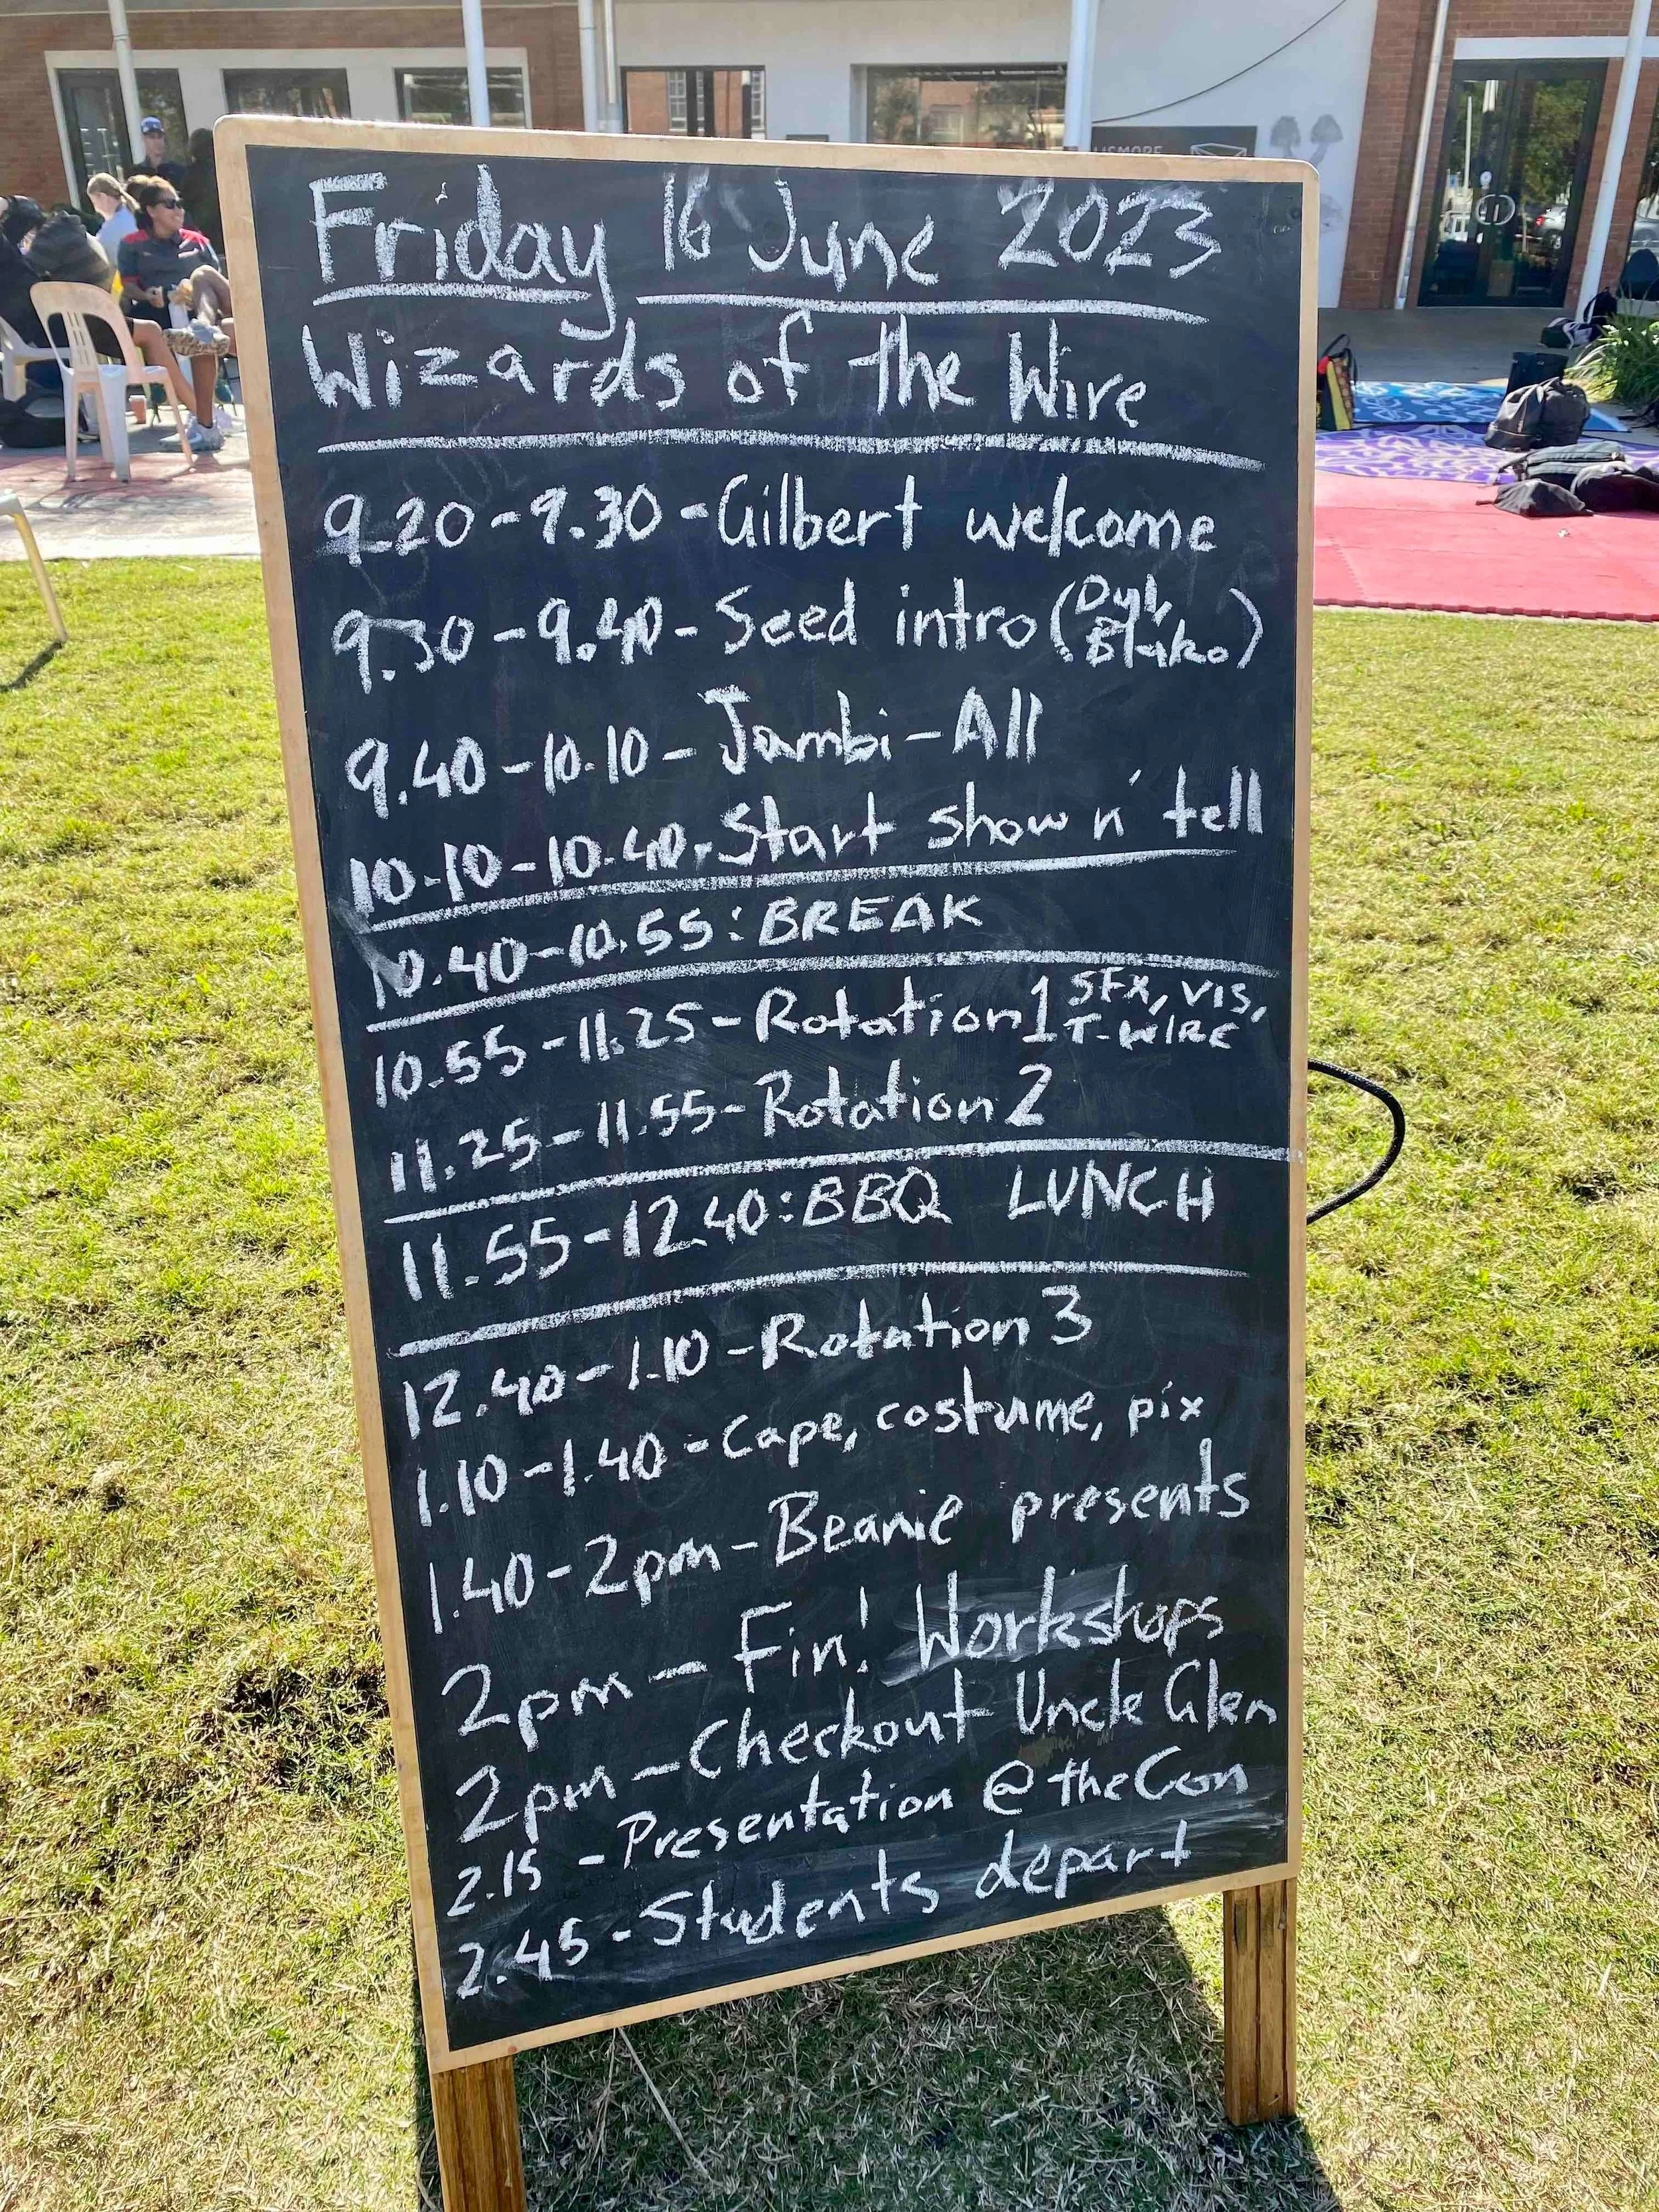 Friday 16 June 2023
Wizards of the Wire
9.20-9.30-Gilbert welcome
9.30-9.40-Seed intro (Dyl, Blako)
9.40-10.10-Jambi-All
10.10-10.40-Start show n' tell
10.40-10.55: BREAK
10.55-11.25-Rotation 1 SFX, VIS, T-WIRE
11.25-11.55-Rotation 2
11.55-12.40: BBQ LUNCH
12.40-1.10-Rotation 3
1.10-1.40-Cape, costume, pix
1.40-2pm-Beanie presents
2pm-Fin! Workshops
2pm-Checkout Uncle Glen
2.15-Presentation @ the Con
2.45-Students depart
LISMORE